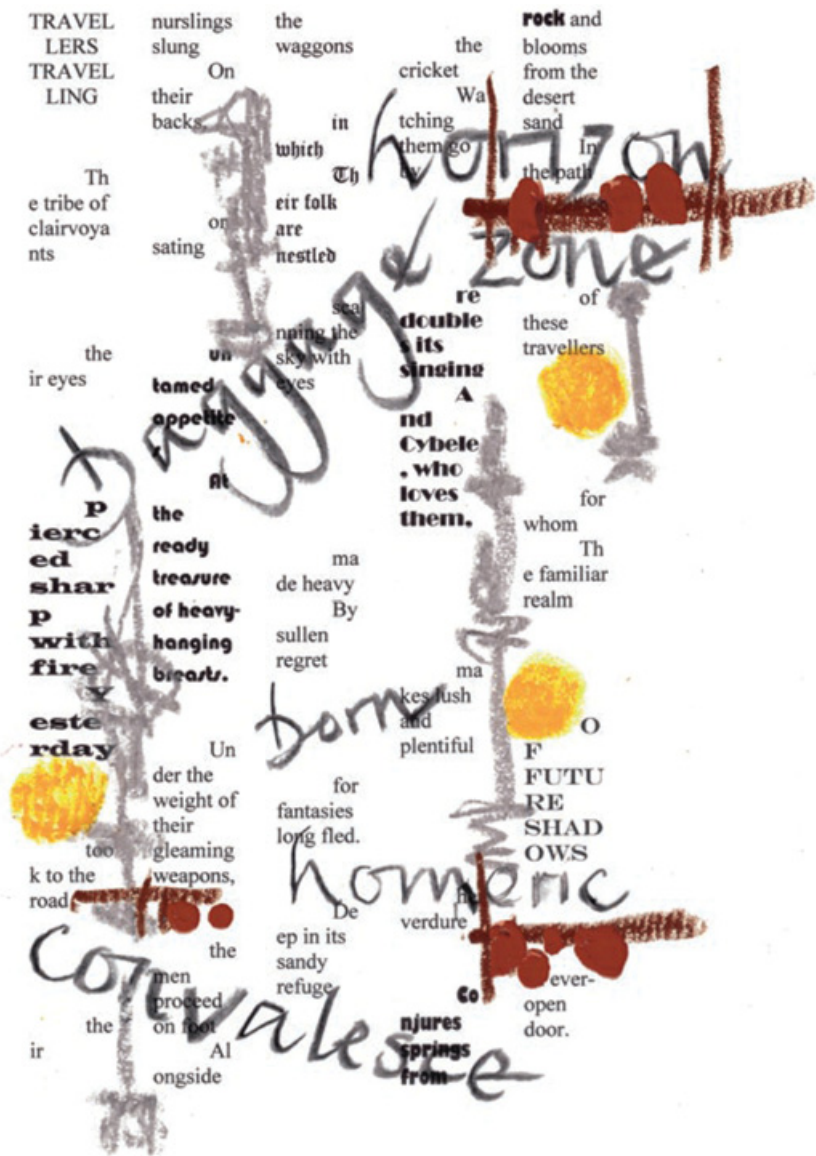 TRAVEL
LERS
TRAVEL
LING
Th
e tribe of
clairvoya
nts
the
ir eyes
p
ierc
ed
shar
p
with
fire
Y
este
rday
too
k to the
road
the
ir
nurslings
slung
On
their
backs,
or
sating
un
tamed
appetite
At
the
ready
treasure
of heavy-
hanging
breasts.
Un
der the
weight of
their
gleaming
weapons,
the
men
proceed
on foot
Al
ongside
the
waggons
in
which
Th
eir folk
are
nestled
sca
nning the
sky with
eyes
ma
de heavy
By
sullen
regret
for
fantasies
long fled.
De
ep in its
sandy
refuge
the
cricket
Wa
tching
them go
by
re
double
s its
singing
A
nd
Cybele
, who
loves
them,
ma
kes lush
and
plentiful
verdure
Co
njures
springs
from
rock and
blooms
from the
desert
sand
In
the path
of
these
travellers
for
whom
Th
e familiar
realm
O
F
FUTU
RE
SHAD
OWS
ever-
open
door.
horizon
baggage zone
born
homeric
convalesce